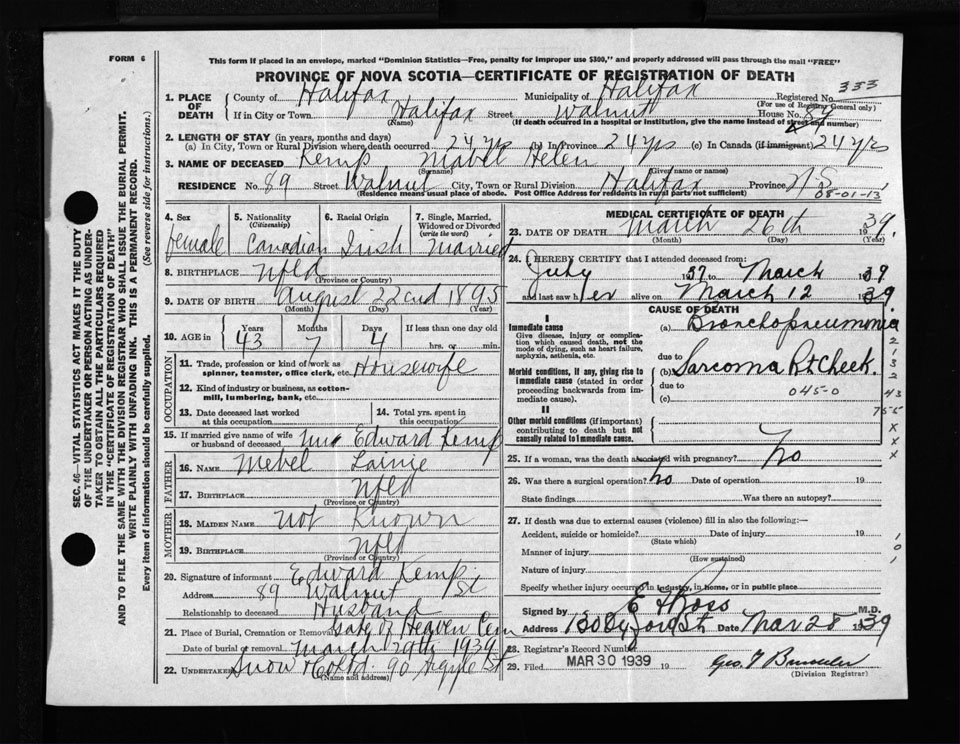 FORM 6
This form if placed in an envelope, marked "Dominion Statistics—Free, penalty for improper use $300," and properly addressed will pass through the mail "FREE"
PROVINCE OF NOVA SCOTIA—CERTIFICATE OF REGISTRATION OF DEATH
1. PLACE OF DEATH
County of Halifax Municipality of Halifax Registered No. 333
(For use of Registrar General only)
If in City or Town Halifax Street Walnut House No. 89
(Name) (If death occurred in a hospital or institution, give the name instead of street and number)
2. LENGTH OF STAY (in years, months and days)
(a) In City, Town or Rural Division where death occurred 24 yrs (b) In Province 24 yrs (c) In Canada (if immigrant) 24 yrs
3. NAME OF DECEASED Kemp Mabel Helen
(Surname) (Given name or names)
RESIDENCE No. 89 Street Walnut City, Town or Rural Division Halifax Province N S
(Residence means usual place of abode. Post Office Address for residents in rural parts not sufficient) 08-01-13
4. Sex female
5. Nationality (Citizenship) Canadian
6. Racial Origin Irish
7. Single, Married, Widowed or Divorced (write the word) Married
8. BIRTHPLACE Nfld
(Province or Country)
9. DATE OF BIRTH August 22nd 1895
(Month) (Day) (Year)
10. AGE in Years 43 Months 7 Days 4 If less than one day
hrs. or min.
OCCUPATION
11. Trade, profession or kind of work as spinner, teamster, office clerk, etc. Housewife
12. Kind of industry or business, as cotton-mill, lumbering, bank, etc.
13. Date deceased last worked at this occupation
14. Total yrs. spent in this occupation
15. If married give name of wife or husband of deceased Mr Edward Kemp
FATHER
16. NAME Mebel
17. BIRTHPLACE Nfld
(Province or Country)
MOTHER
18. MAIDEN NAME Not Known
19. BIRTHPLACE Nfld
(Province or Country)
20. Signature of informant Edward Kemp
Address 89 Walnut St
Relationship to deceased Husband
21. Place of Burial, Cremation or Removal Gate of Heaven Cem
Date of burial or removal March 29th 1939
22. UNDERTAKER Snow & Co Ltd. 90 Argyle St
(Name and address)
MEDICAL CERTIFICATE OF DEATH
23. DATE OF DEATH March 26th 1939.
(Month) (Day) (Year)
24. I HEREBY CERTIFY that I attended deceased from:
July 1937 to March 1939
and last saw her alive on March 12 1939
CAUSE OF DEATH
I
Immediate cause
Give disease, injury or complication which caused death, not the mode of dying, such as heart failure, asphyxia, asthenia, etc.
(a) Bronchopneumonia
due to
Morbid conditions, if any, giving rise to immediate cause (stated in order proceeding backwards from immediate cause).
(b) Sarcoma Rt Cheek.
due to 045-0
(c)
II
Other morbid conditions (if important) contributing to death but not causally related to immediate cause.
2
1
3
2
43
755
x
x
x
25. If a woman, was the death associated with pregnancy? No
26. Was there a surgical operation? No Date of operation 19
State findings Was there an autopsy?
27. If death was due to external causes (violence) fill in also the following:—
Accident, suicide or homicide? Date of injury 19
(State which)
Manner of injury
(How sustained)
Nature of injury
Specify whether injury occurred in industry, in home, or in public place
1
0
1
Signed by E Ross M.D.
Address 130 Oxford St Date Mar 28 1939
28. Registrar's Record Number
29. Filed MAR 30 1939 19
(Division Registrar)
SEC. 46—VITAL STATISTICS ACT MAKES IT THE DUTY
OF THE UNDERTAKER OR PERSON ACTING AS UNDER-
TAKER TO OBTAIN ALL THE PARTICULARS REQUIRED
IN THE "CERTIFICATE OF REGISTRATION OF DEATH"
AND TO FILE THE SAME WITH THE DIVISION REGISTRAR WHO SHALL ISSUE THE BURIAL PERMIT.
WRITE PLAINLY WITH UNFADING INK. THIS IS A PERMANENT RECORD.
Every item of information should be carefully supplied. (See reverse side for instructions.)